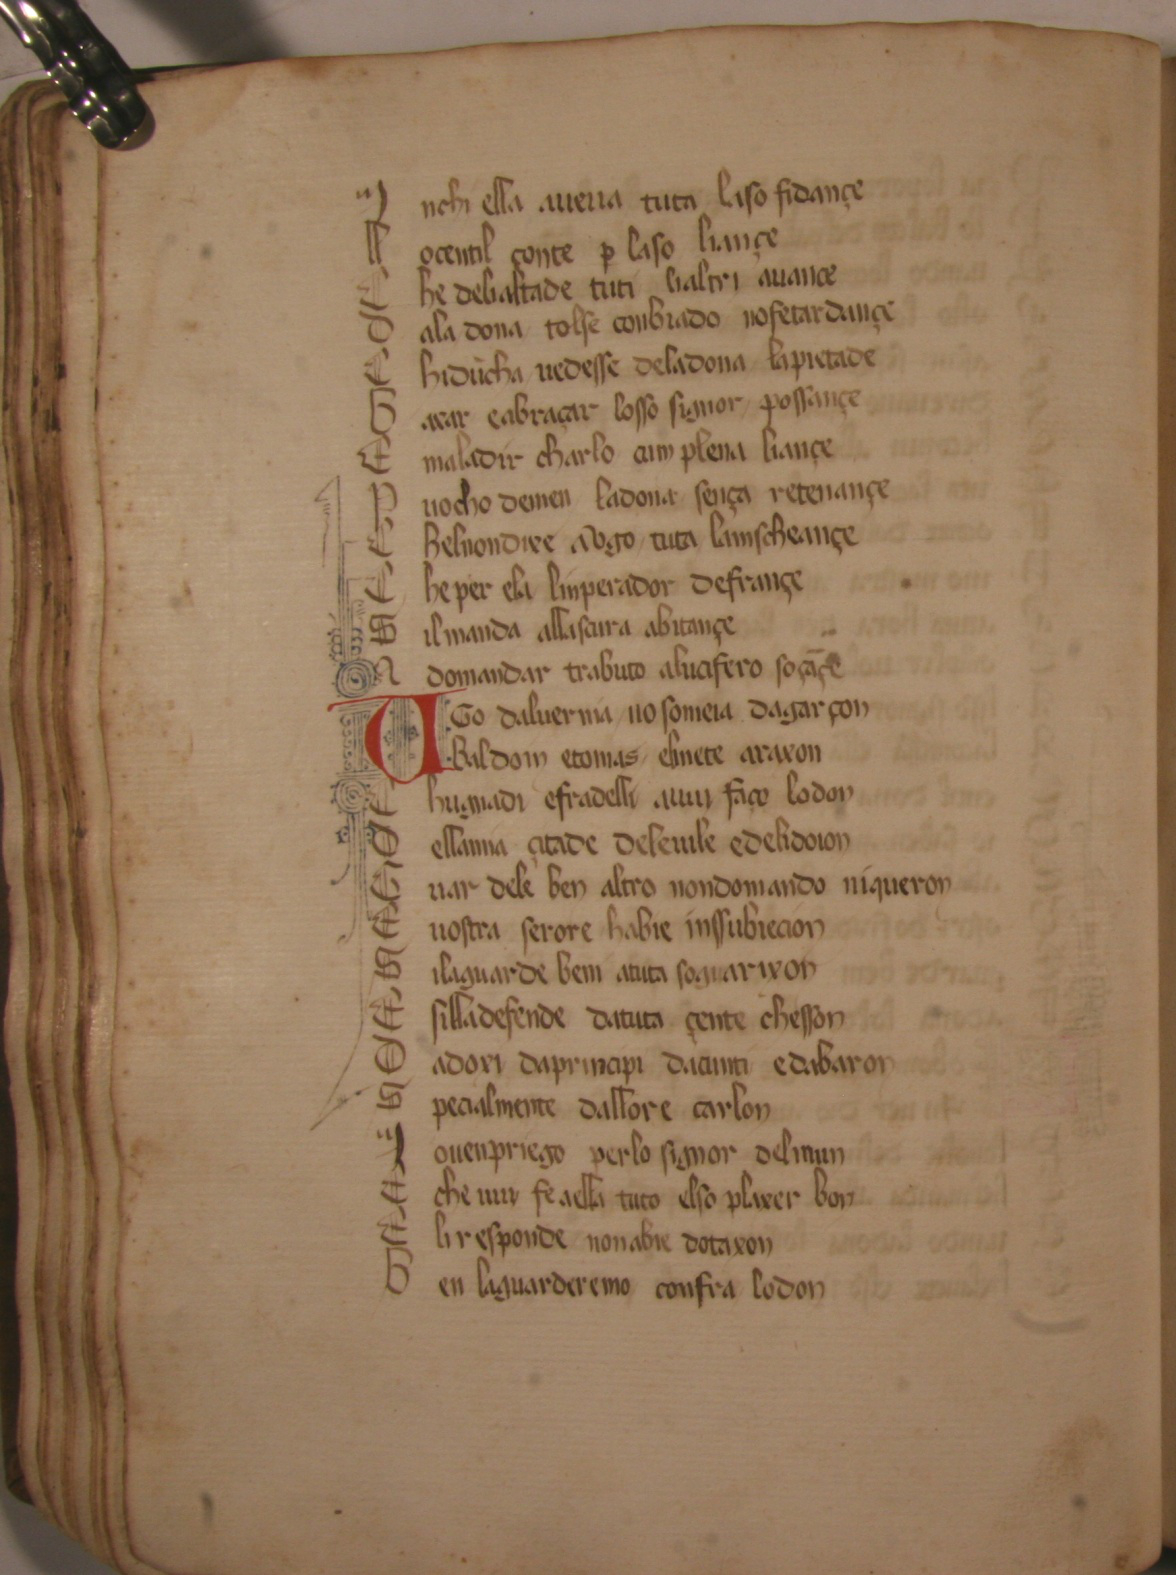 I nchi ella auerà tuta laso fidançe
L oçentil çonte ꝑ laso liançe
C he debaltade tuti lialtri auançe
D ala dona tolse conbiado nosetardançe
C hidūcha uedesse deladona lapietade
B axar eabraçar losso signor possançe
E maladir charlo cum plena liançe
P uocho demen ladona sença retenançe
C helnondixe aVgo tuta lamscheançe
C he per ela linperador defrançe
S il manda allascura abitançe
A domandar trabuto alucifero soçāçe
U Go daluernia no someia dagarçon
Baldoin etomas elinete araxon
C hugnadi efradelli auui faço lodon
D ellamia çitade deleuile edelidoion
G uar dele ben altro nondomando niqueron
E uostra serore habie inssubiecion
S ilaguarde bem atuta soguarixon
E silladefende datuta çente chesson
D adori daprincipi dacunti edabaron
S pecialmente dallore carlon
I ouenpriego perlo signor delmun
E che uui fe aella tuto elso plaxer bon
E li responde nonabie dotaxon
B en laguarderemo confra lodon